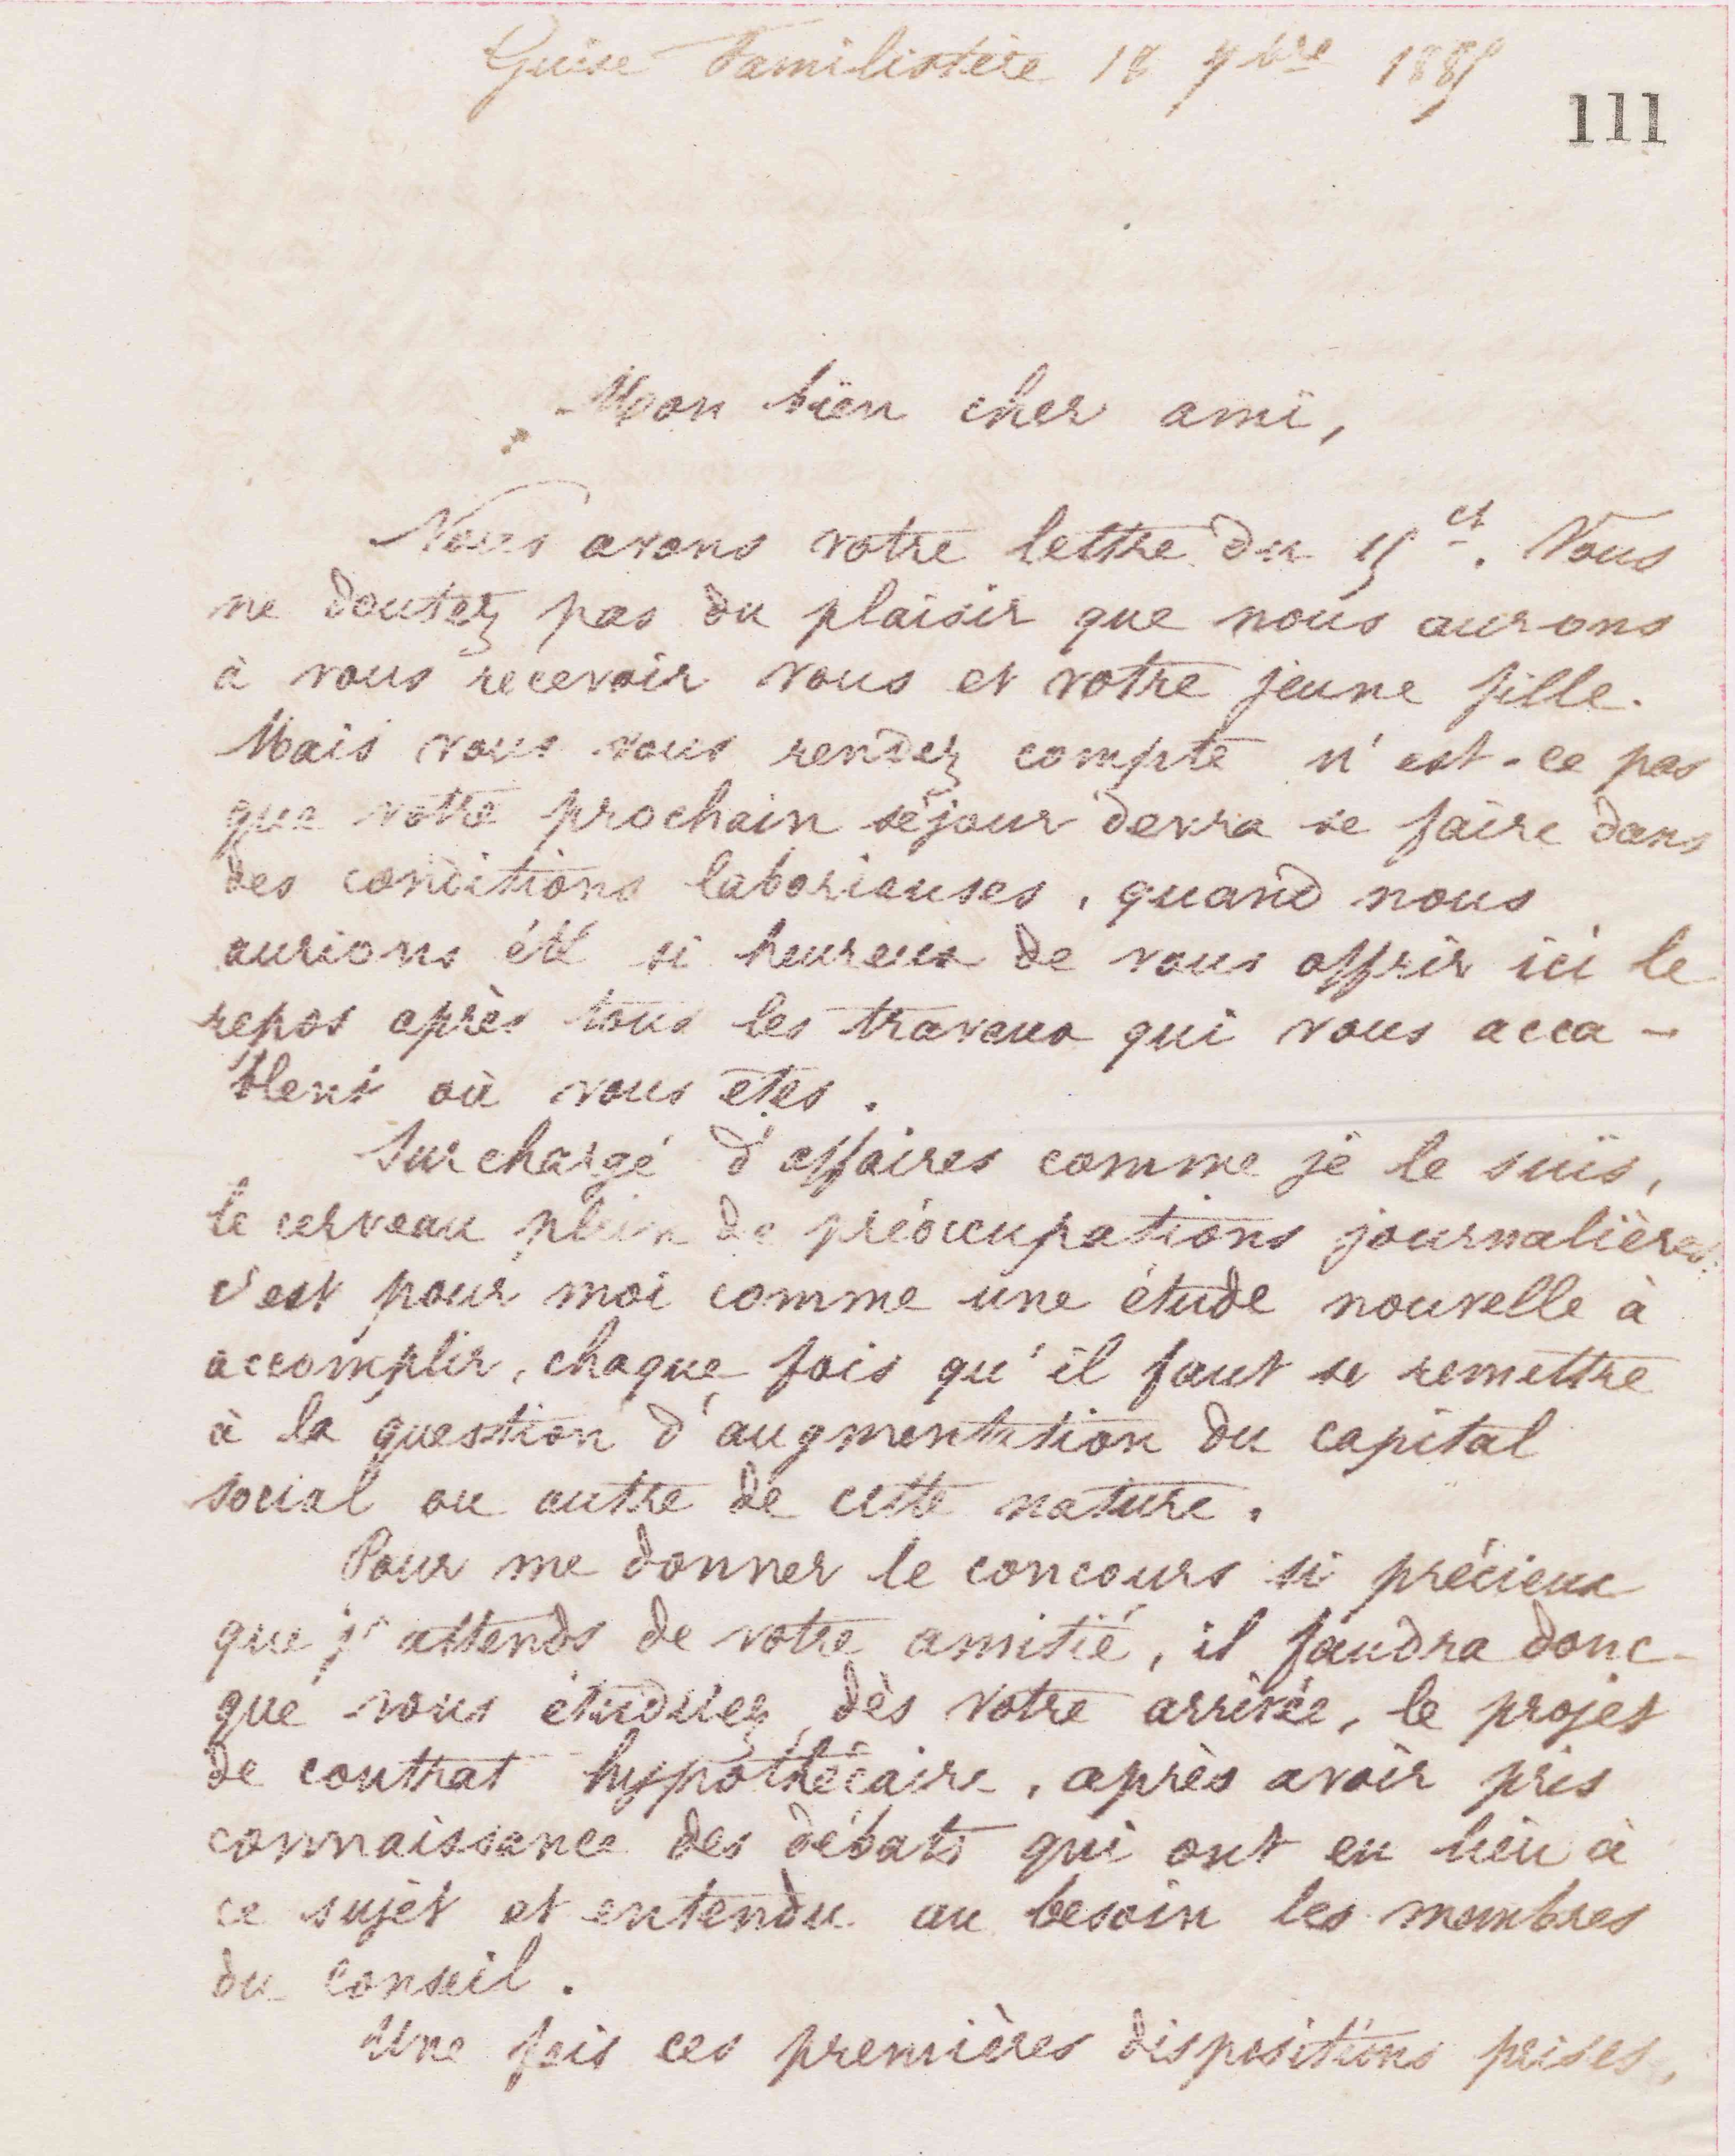 Guise Familistère 18 7bre 1885
111
Mon bien cher ami,
Nous avons votre lettre du 15 ct. Vous
ne doutez pas du plaisir que nous aurons
à vous recevoir vous et votre jeune fille.
Mais vous vous rendez compte n'est-ce pas
que votre prochain séjour devra se faire dans
des conditions laborieuses, quand nous
aurions été si heureux de vous offrir ici le
repos après tous les travaux qui vous acca-
blent où vous êtes.
Surchargé d'affaires comme je le suis,
le cerveau plein de préoccupations journalières,
c'est pour moi comme une étude nouvelle à
accomplir, chaque fois qu'il faut se remettre
à la question d'augmentation du capital
social ou autre de cette nature.
Pour me donner le concours si précieux
que j'attends de votre amitié, il faudra donc
que vous étudiiez, dès votre arrivée, le projet
de contrat hypothécaire, après avoir pris
connaissance des débats qui ont eu lieu à
ce sujet et entendu au besoin les membres
du Conseil.
Une fois ces premières dispositions prises,